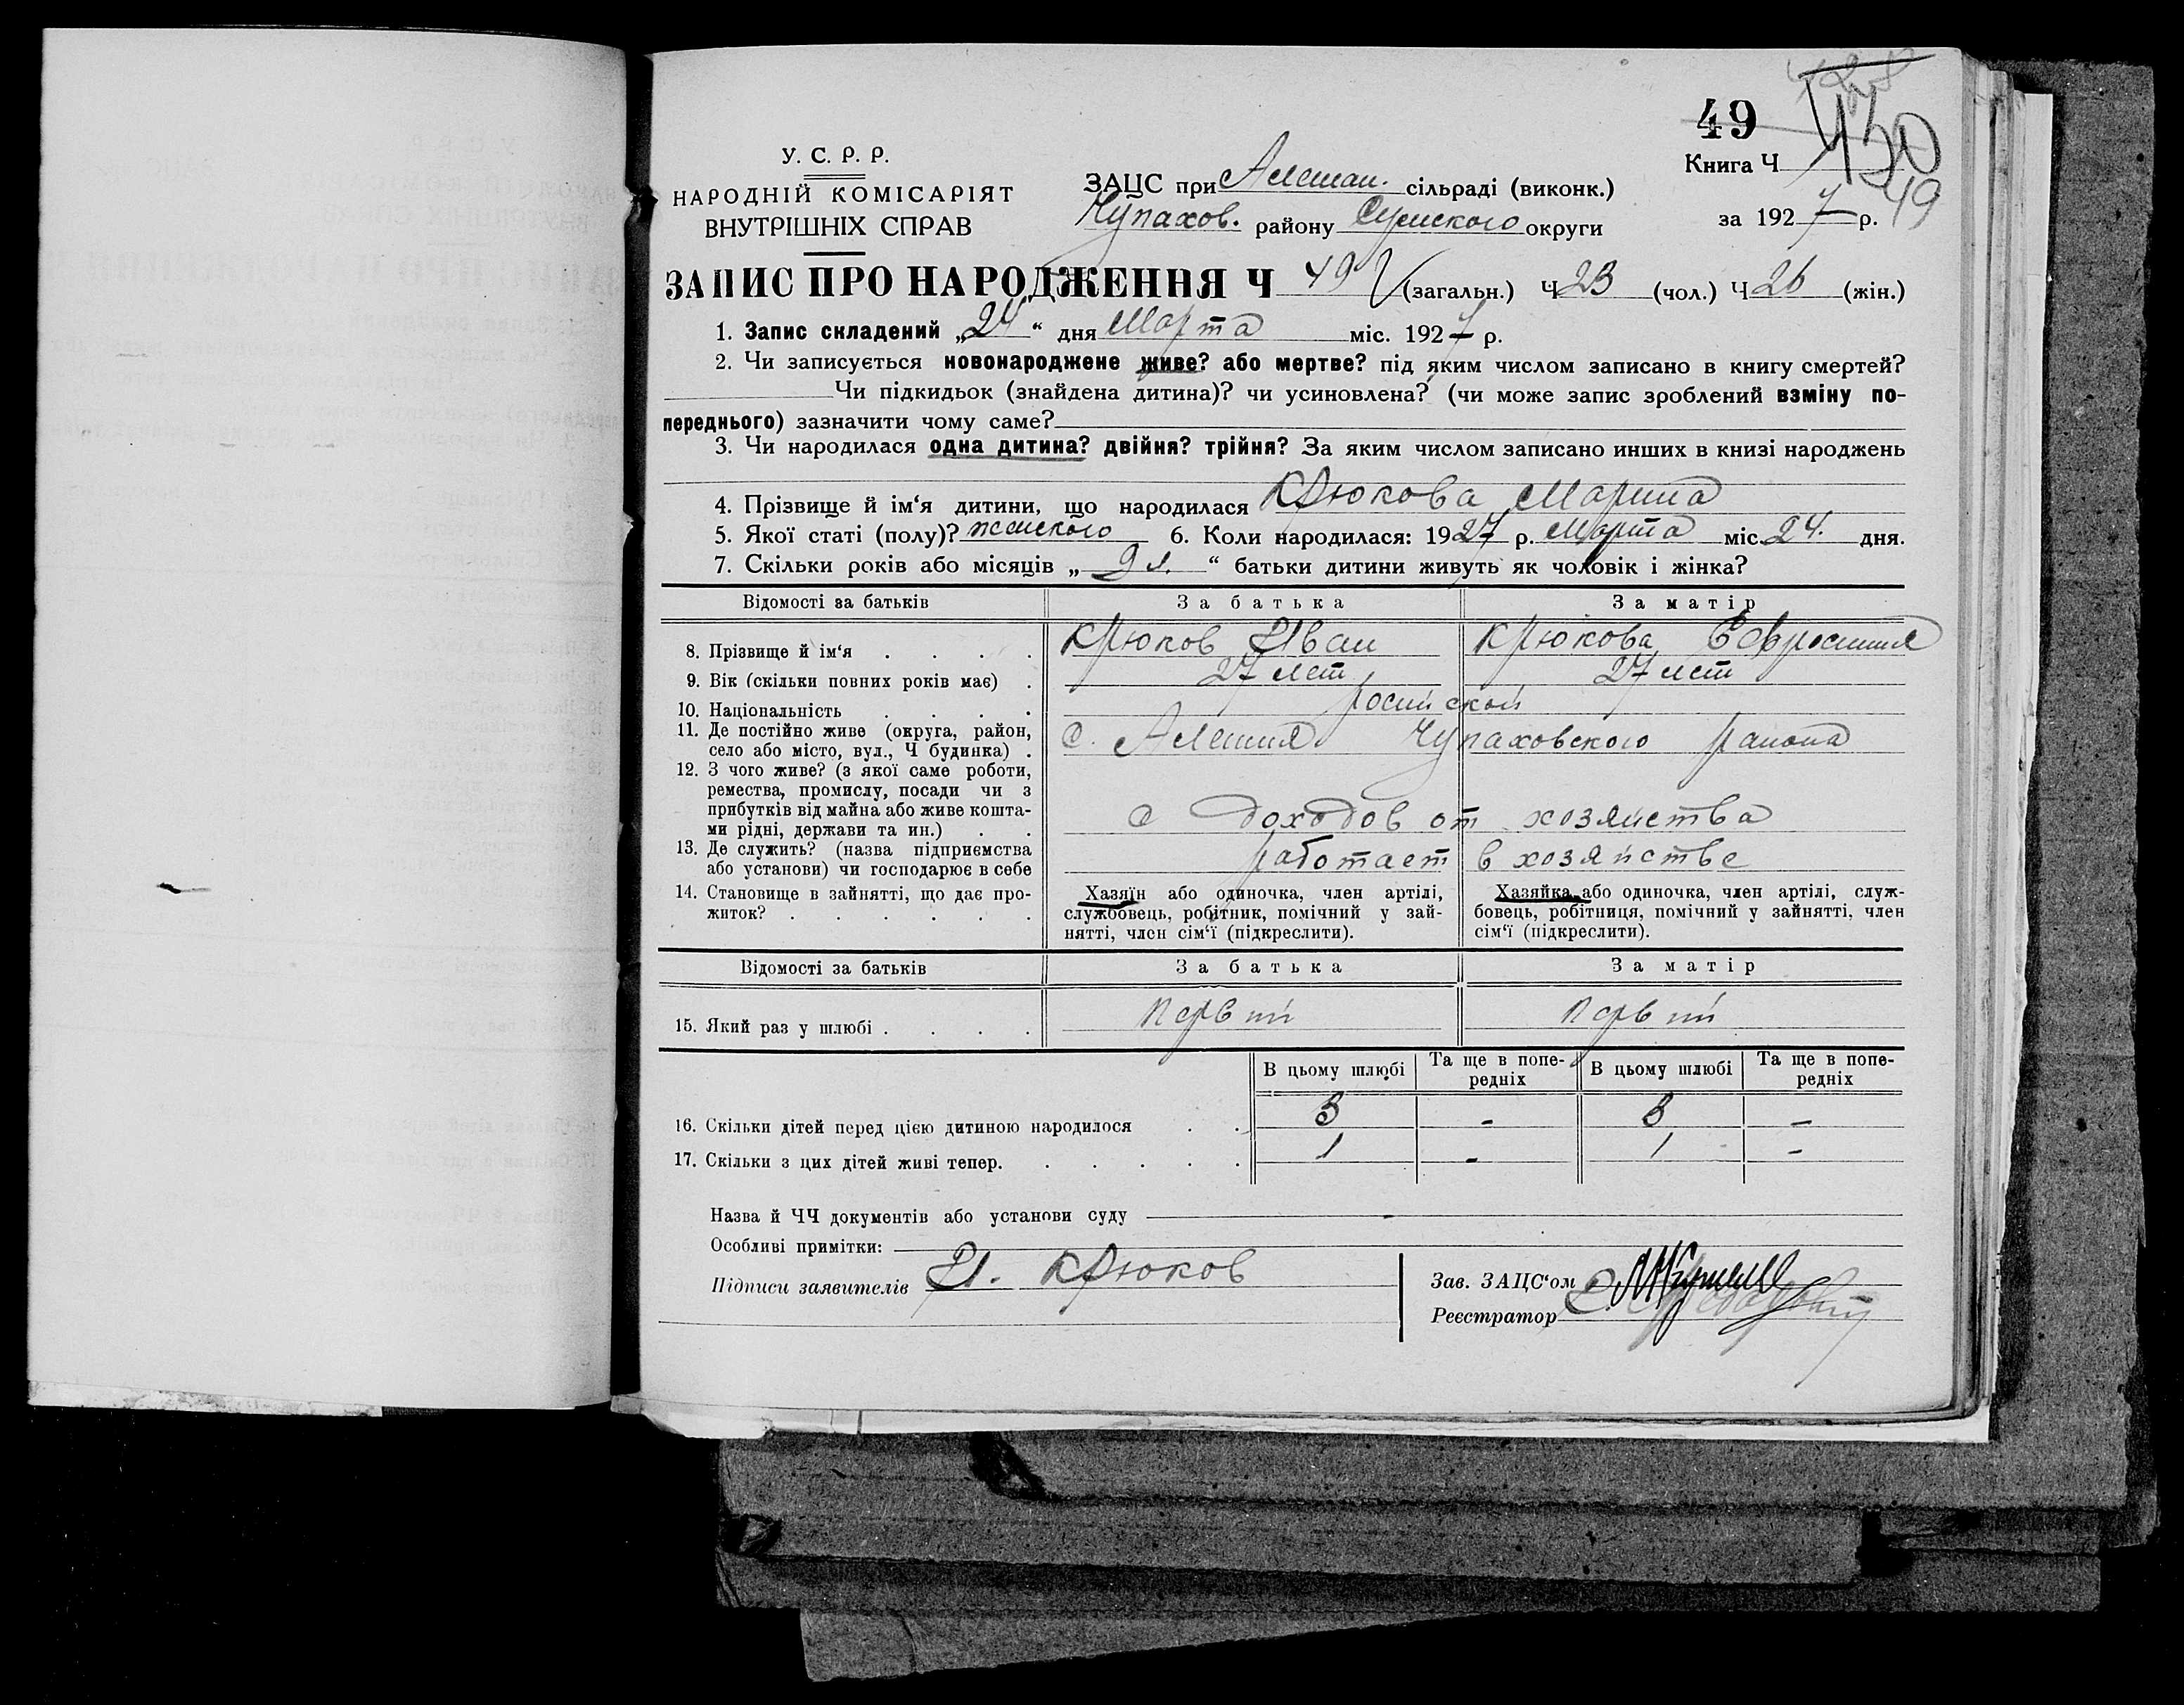 49
150
49
У. С. Р. Р.
НАРОДНІЙ КОМІСАРІЯТ
ВНУТРІШНІХ СПРАВ
Книга Ч
ЗАЦС при Алешан. сільраді (виконк.)
Чупахов. району Сумского округи
за 1927 р.
ЗАПИС ПРО НАРОДЖЕННЯ Ч 49 (загальн.) Ч 23 (чол.) Ч 26 (жін.)
1. Запис складений „24“ дня Марта міс. 1927 р.
2. Чи записується новонароджене живе? або мертве? під яким числом записано в книгу смертей?
Чи підкидьок (знайдена дитина)? чи усиновлена? (чи може запис зроблений взміну по-
переднього) зазначити чому саме?
3. Чи народилася одна дитина? двійня? трійня? За яким числом записано инших в книзі народжень
4. Прізвище й ім‘я дитини, що народилася Крюкова Мария
5. Якої статі (полу)? женского 6. Коли народилася: 1927 р. Марта міс. 24. дня.
7. Скільки років або місяців „9 л.“ батьки дитини живуть як чоловік і жінка?
Відомості за батьків За батька За матір
8. Прізвище й ім‘я . . . . Крюков Иван Крюкова Ефросиния
9. Вік (скільки повних років має) . 27 лет 27 лет
10. Національність . . . . росийской
11. Де постійно живе (округа, район,
село або місто, вул., Ч будинка) . С. Алешня Чупаховского района
12. З чого живе? (з якої саме роботи,
ремества, промислу, посади чи з
прибутків від майна або живе кошта-
ми рідні, держави та ин.) . . С доходов от хозяйства
13. Де служить? (назва підприємства
або установи) чи господарює в себе работает в хозяйстве
14. Становище в зайнятті, що дає про-
житок? . . . . . .
Хазяїн або одиночка, член артілі,
службовець, робітник, помічний у зай-
нятті, член сім‘ї (підкреслити).
Хазяйка або одиночка, член артілі, служ-
бовець, робітниця, помічний у зайнятті, член
сім‘ї (підкреслити).
Відомості за батьків За батька За матір
15. Який раз у шлюбі . . . . первий первий
В цьому шлюбі Та ще в попе-
редніх В цьому шлюбі Та ще в попе-
редніх
16. Скільки дітей перед цією дитиною народилося . . 3 - 3 -
17. Скільки з цих дітей живі тепер. . . . . . 1 - 1 -
Назва й ЧЧ документів або установи суду -
Особливі примітки:
Підписи заявителів И. Крюков
Зав. ЗАЦС‘ом
Реєстратор